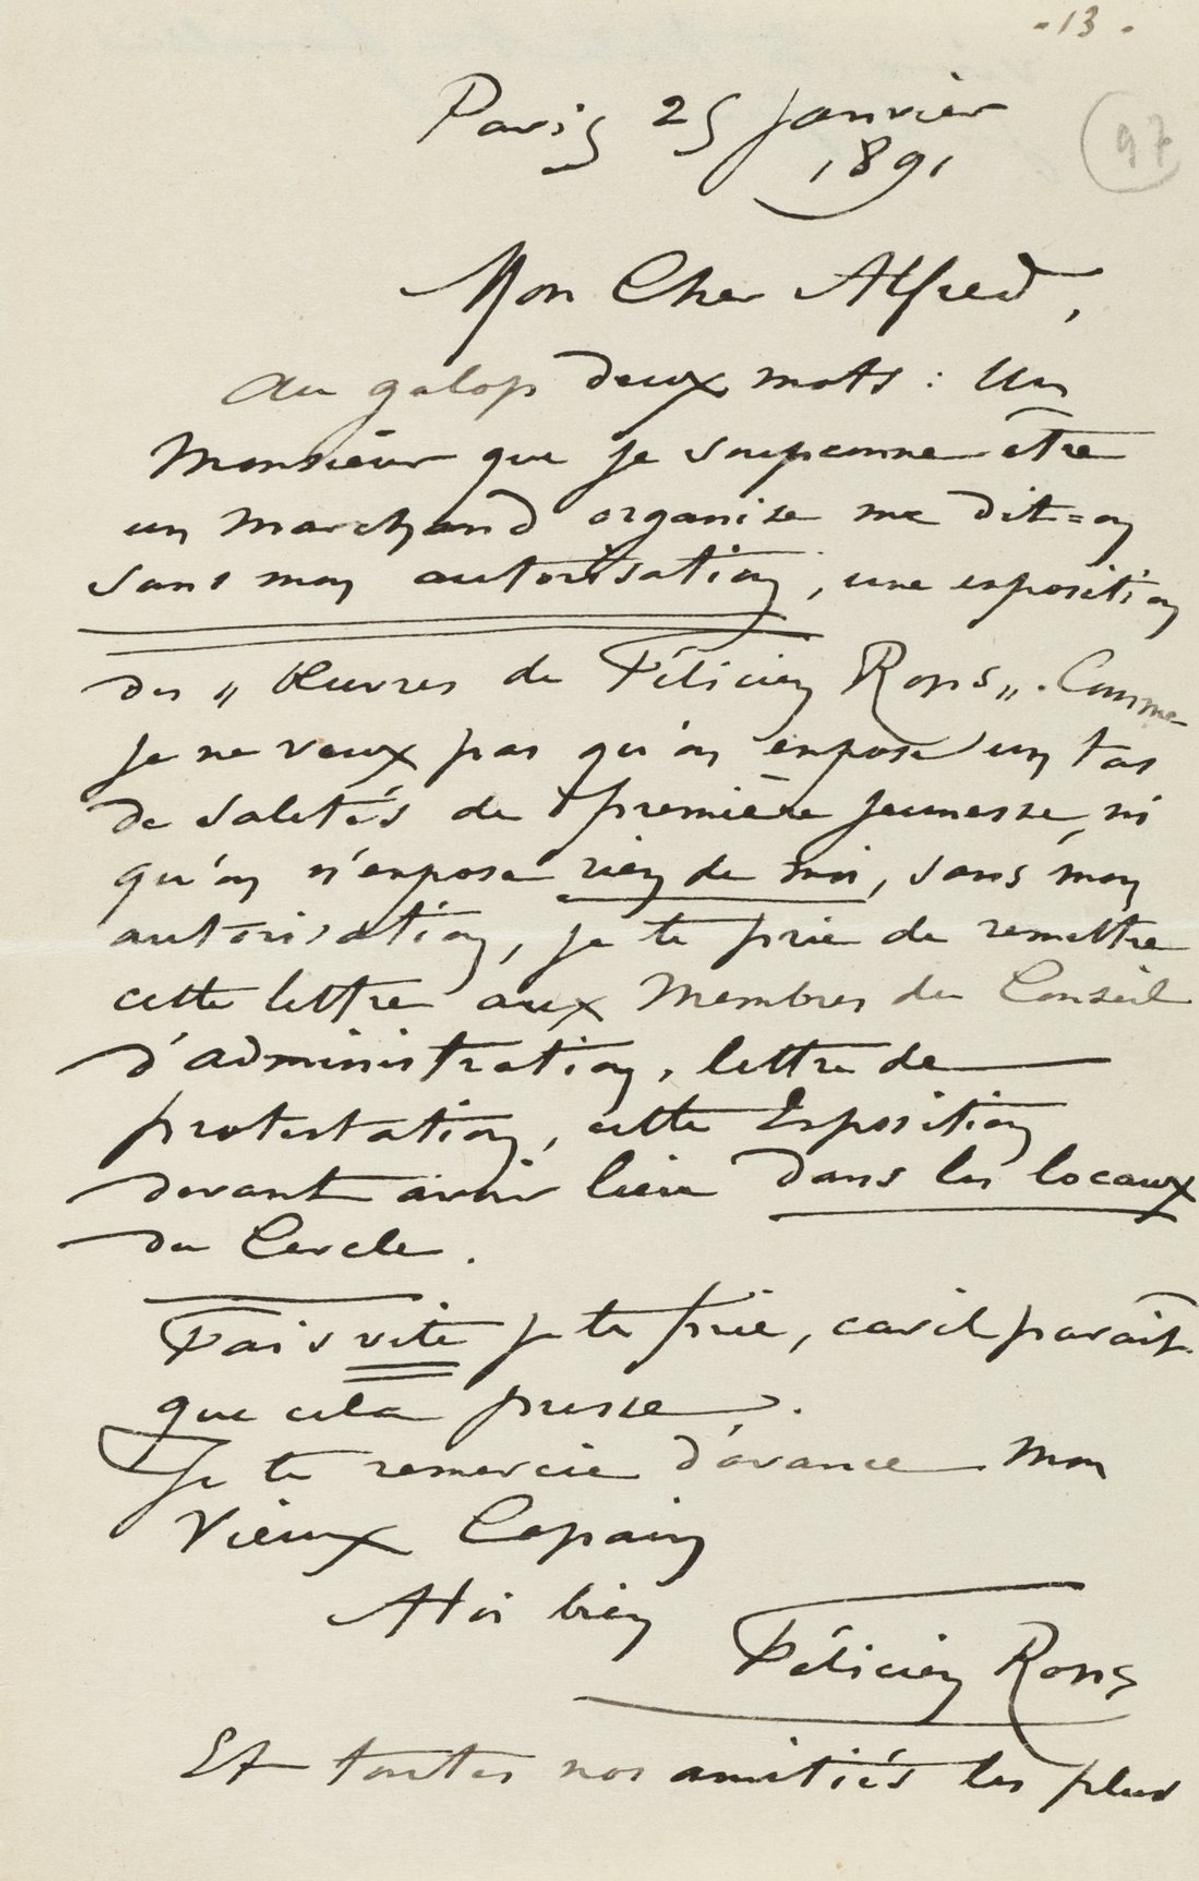 -13-
97
Paris 25 Janvier
1891
Mon Cher Alfred,
Au galop deux mots : Un
Monsieur que je soupconne être
un Marchand organise me dit=on
sans mon autorisation, une exposition
des „ Œuvres de Félicien Rops„. Comme
je ne veux pas qu'on expose un tas
de saletés de première jeunesse, ni
qu'on n'expose rien de moi, sans mon
autorisation, je te prie de remettre
cette lettre aux Membres du Conseil
d'administration, lettre de
protestation, cette Exposition
devant avoir lieu dans les locaux
du Cercle.
Fais vite je te prie, car il paraît
que cela presse.
Je te remercie d'avance mon
Vieux Copain
A toi bien
Félicien Rops
Et toutes nos amitiés les plus